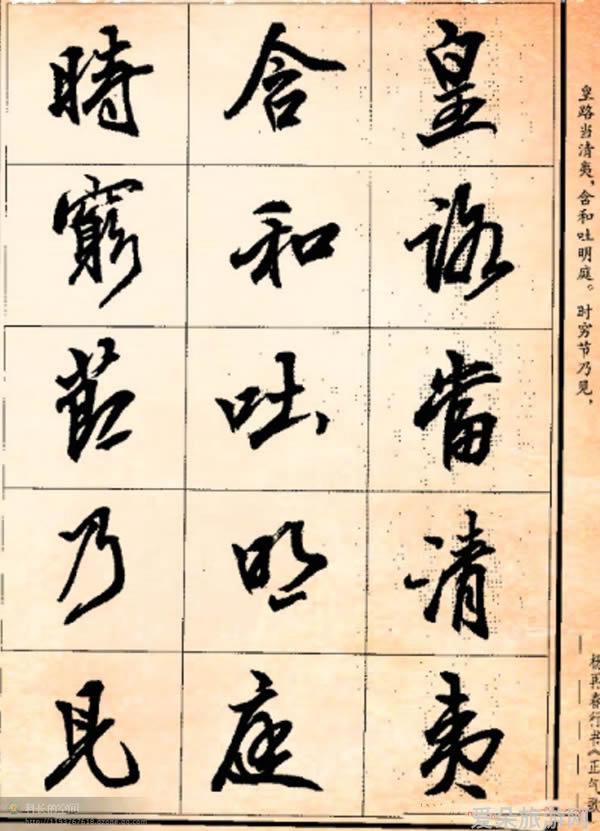 皇路當清夷
含和吐明庭
時窮節乃見
皇路当清夷，含和吐明庭。时穷节乃见，
杨再春行书《正气歌
科长的空间
爱朵旅游网